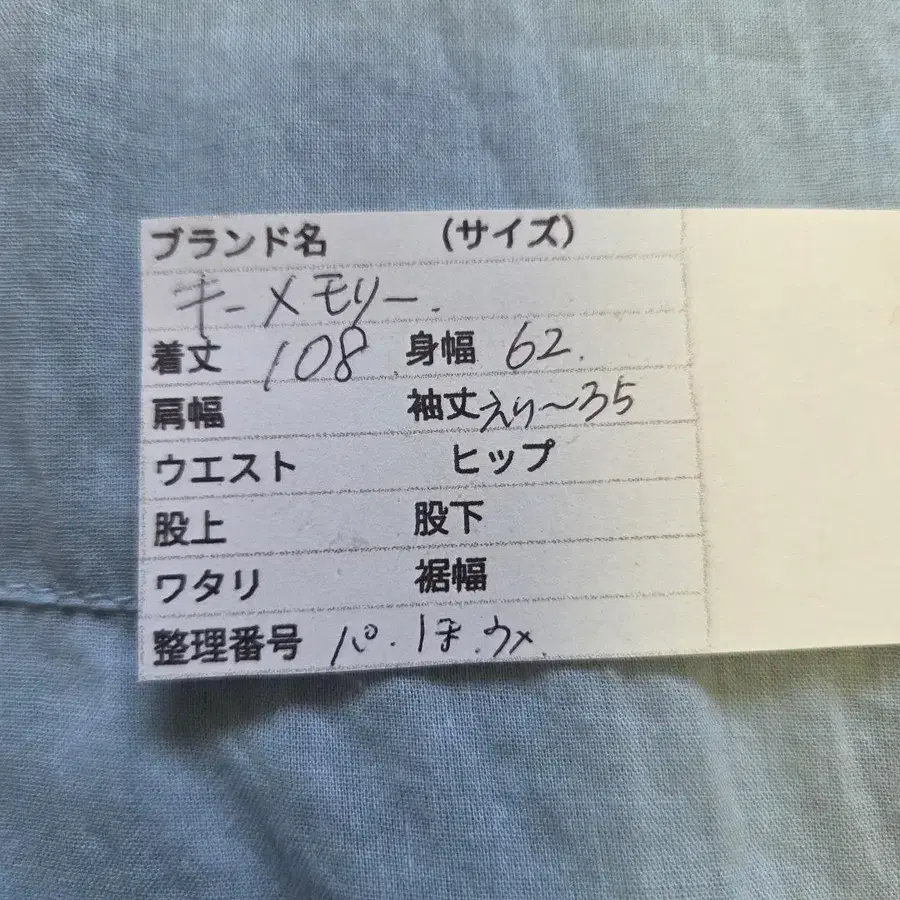 ブランド名 (サイズ)
キーメモリー.
着丈 108 身幅 62.
肩幅 袖丈 えり〜35
ウエスト ヒップ
股上 股下
ワタリ 裾幅
整理番号 パ.ほ.ウメ.